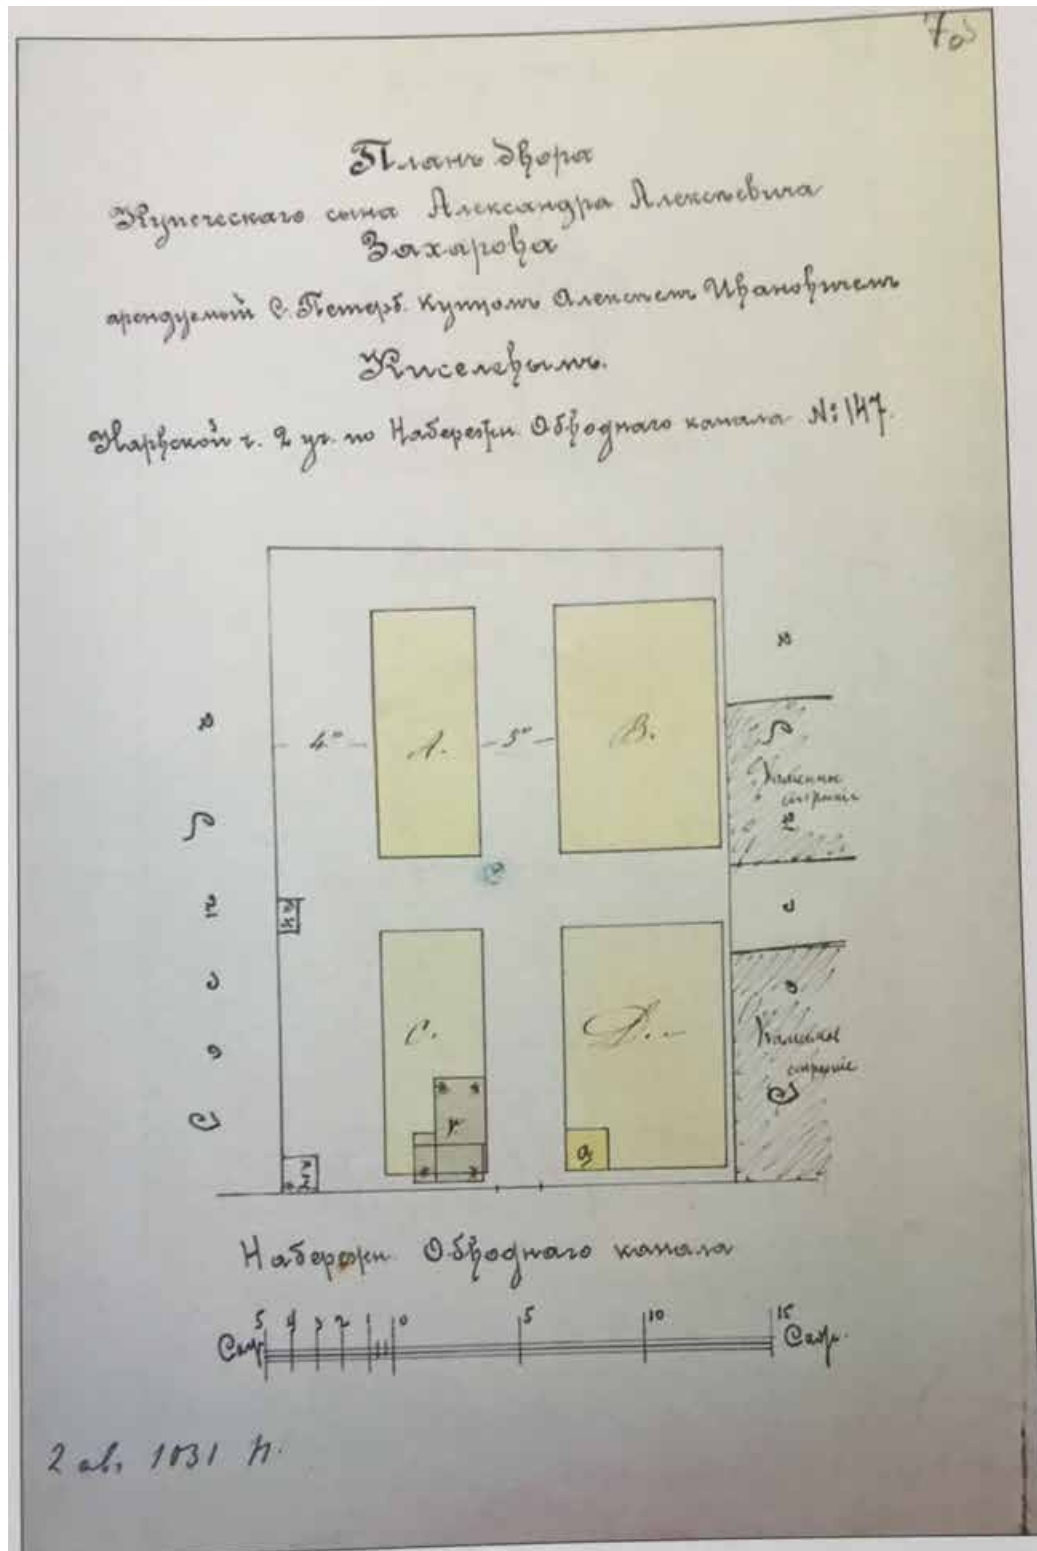 70
Планъ двора
Купеческаго сына Александра Алексѣевича
Захарова
арендуемый С. Петерб. купцомъ Алексѣемъ Ивановичемъ
Киселевымъ.
Нарвской ч. 2 уч. по Набережн. Обводнаго канала №: 147.
4° А. 5° В.
Каменное
строеніе
С. D.
Каменное
строеніе
г
а
Сосѣдъ
Сосѣдъ
Набережн. Обводнаго канала
5 4 3 2 1 0 5 10 15
Саж. Саж.